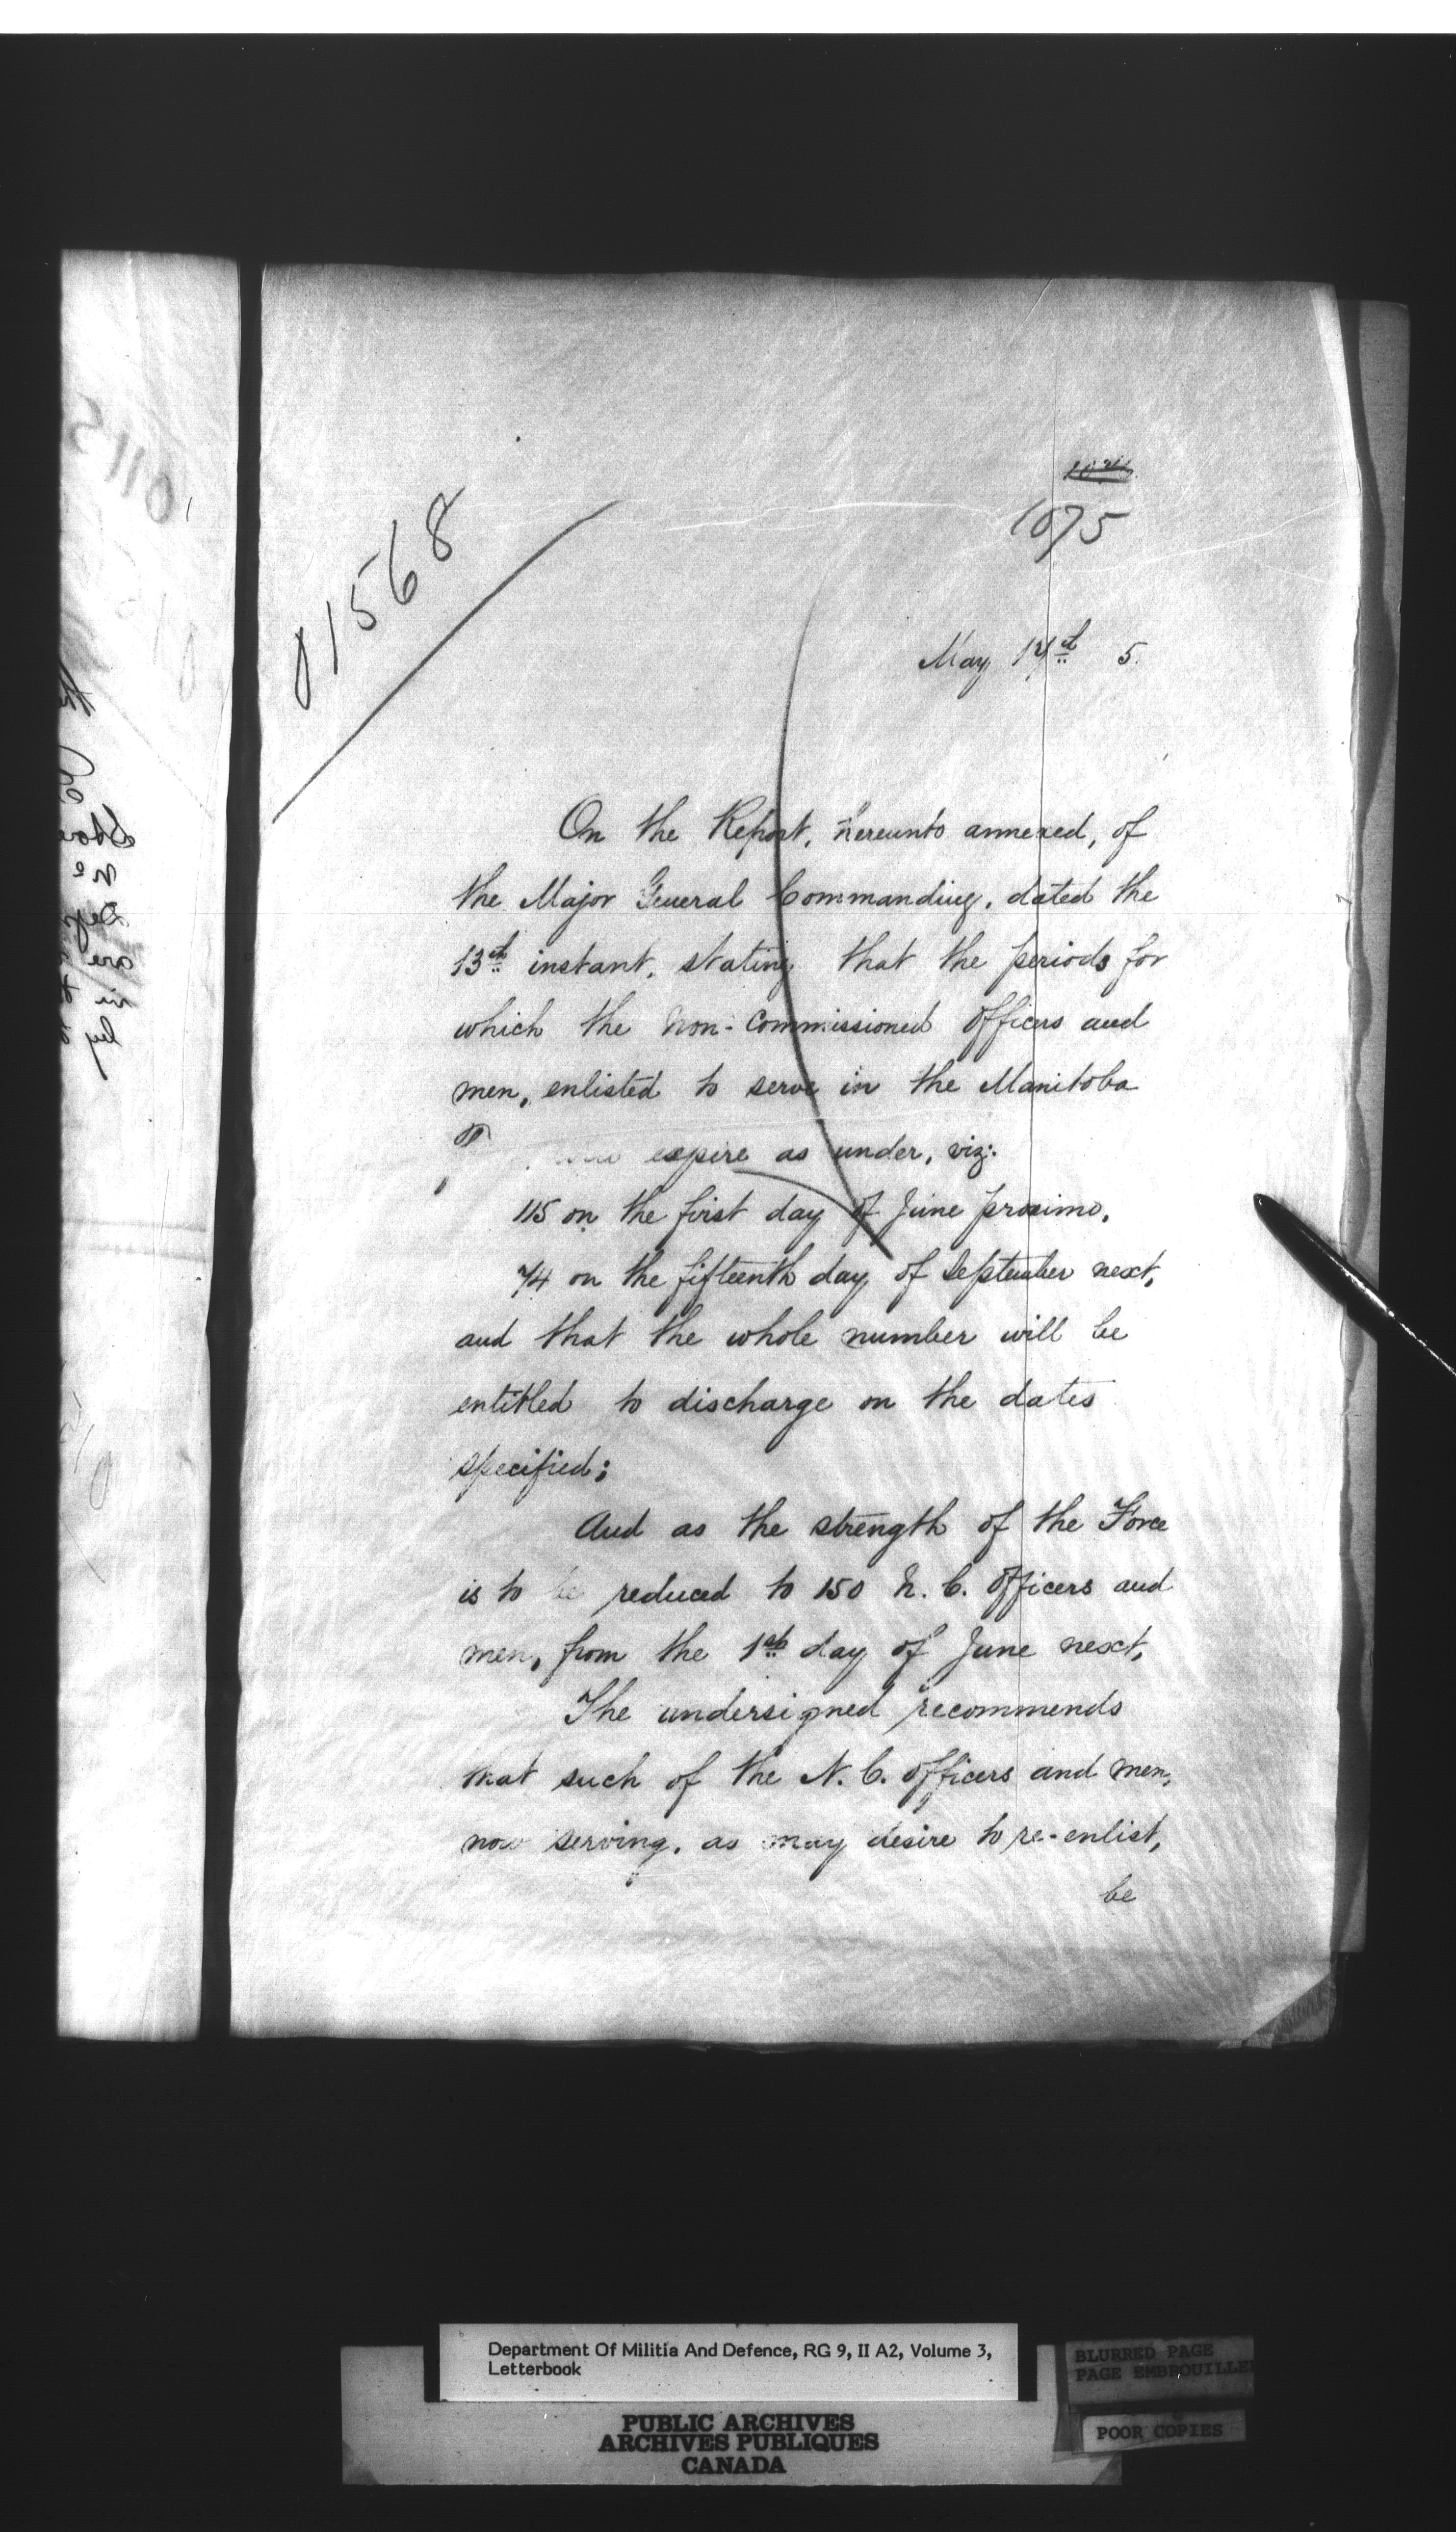 1075
01568
May 14th 5.
On the Report, hereunto annexed, of
the Major General Commanding, dated the
13th instant, stating that the periods for
which the Non-Commissioned Officers and
men, enlisted to serve in the Manitoba
expire as under, viz:
115 on the first day of June proximo,
74 on the fifteenth day of September next,
and that the whole number will be
entitled to discharge on the dates
specified;
And as the strength of the Force
is to be reduced to 150 N. C. Officers and
men, from the 1st day of June next,
The undersigned recommends
that such of the N. C. Officers and men,
now serving, as may desire to re-enlist,
be
Department Of Militia And Defence, RG 9, II A2, Volume 3,
Letterbook
PUBLIC ARCHIVES
ARCHIVES PUBLIQUES
CANADA
BLURRED PAGE
PAGE EMBROUILLE
POOR COPIES